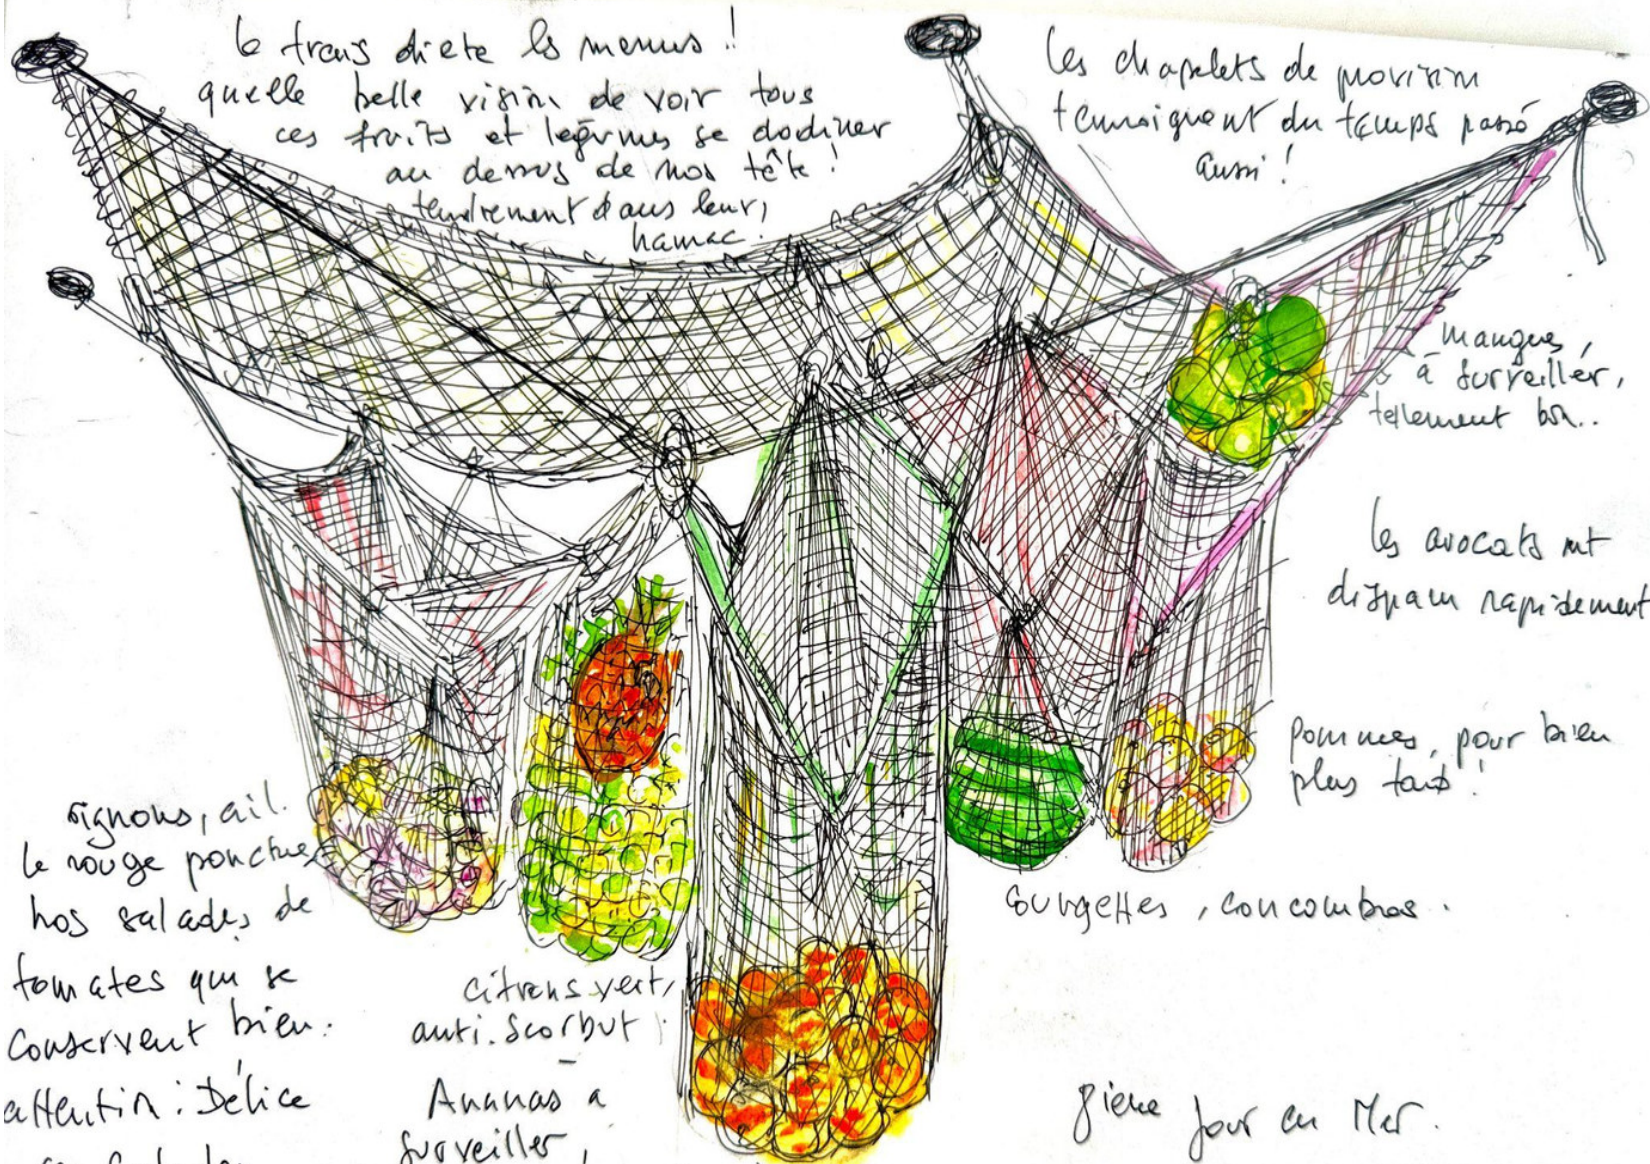 le frais dicte les menus !!
quelle belle vision de voir tous
ces fruits et légumes se dodiner
au dessus de nos tête !
tendrement dans leurs
hamac.
Les chapelets de provision
temoignent du temps passé
aussi !
mangues,
à surveiller,
tellement bon..
les avocats ont
disparu rapidement
pommes, pour bien
plus tard !
courgettes, concombres.
oignons, ail.
le rouge ponctue
nos salades de
tomates qui se
conservent bien.
attention : Délice
citrons vert,
anti.scorbut
Ananas a
surveiller,
8ieme Jour en Mer.